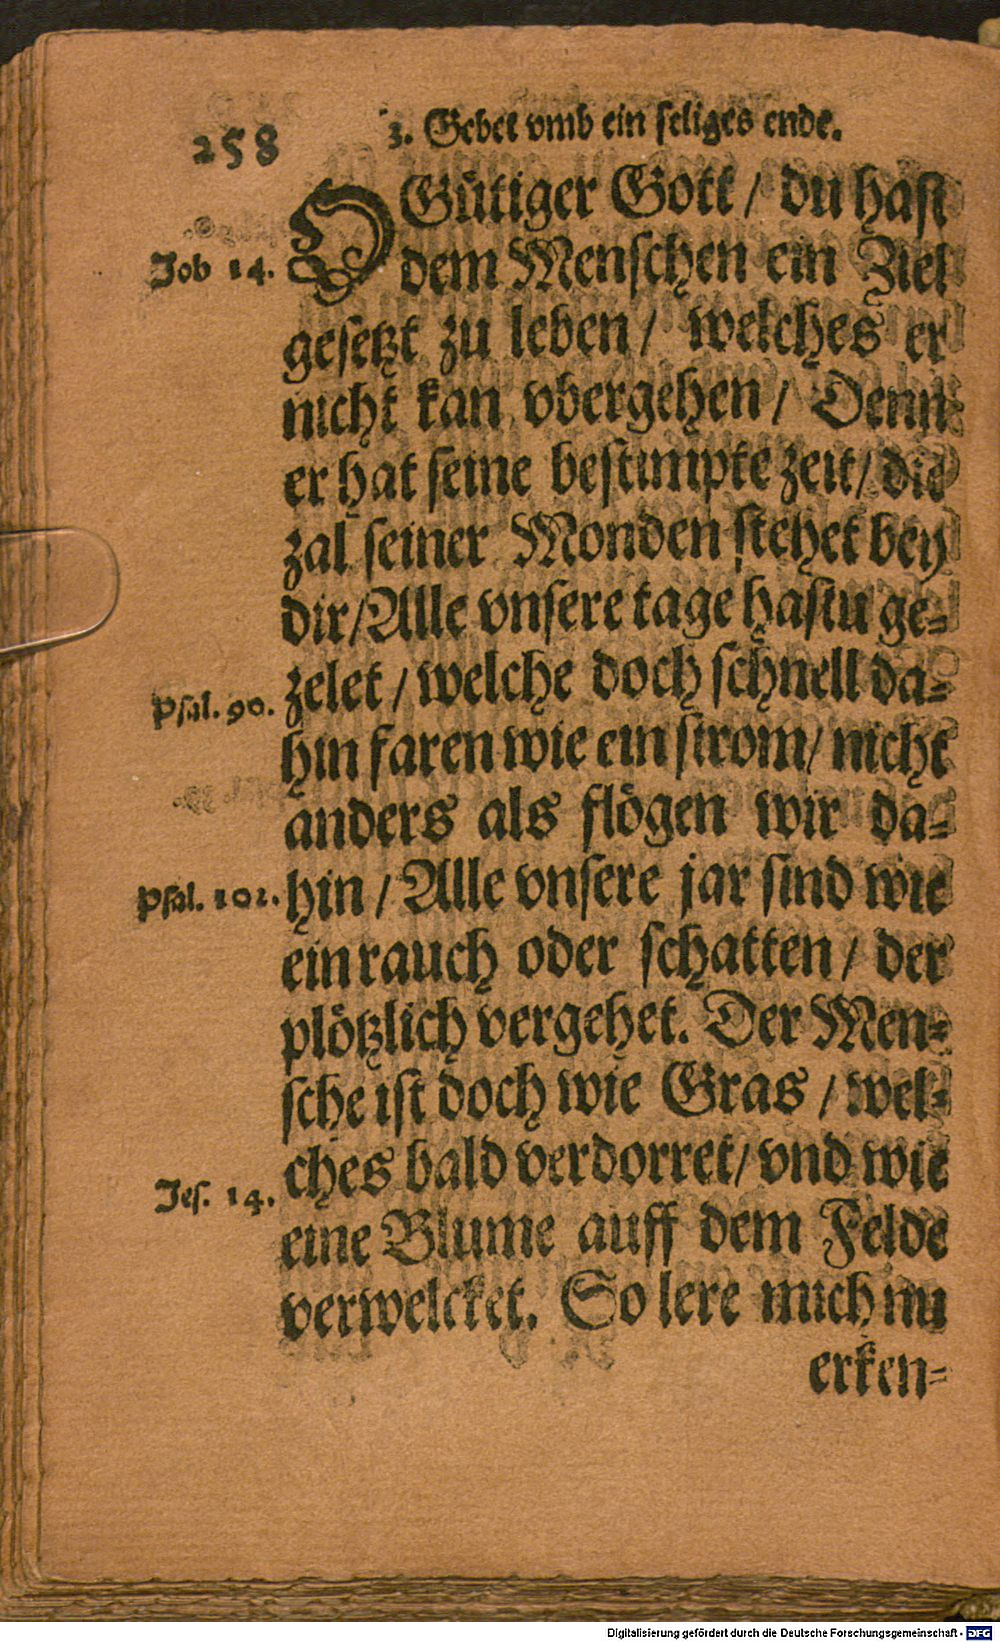 258
3. Gebet vmb ein seliges ende.
O Gütiger Gott / du hast
Job 14.
dem Menschen ein Ziel
gesetzt zu leben / welches er
nicht kan vbergehen / Denn
er hat seine bestimpte zeit / die
zal seiner Monden stehet bey
dir / Alle vnsere tage hastu ge-
zelet / welche doch schnell da-
Psal. 90.
hin faren wie ein strom / nicht
anders als flögen wir da-
Psal. 102.
hin / Alle vnsere jar sind wie
ein rauch oder schatten / der
plötzlich vergehet. Der Men-
sche ist doch wie Gras / wel-
ches bald verdorret / vnd wie
Jes. 14.
eine Blume auff dem Felde
verwelcket. So lere mich nu
erken-
Digitalisierung gefördert durch die Deutsche Forschungsgemeinschaft - DFG